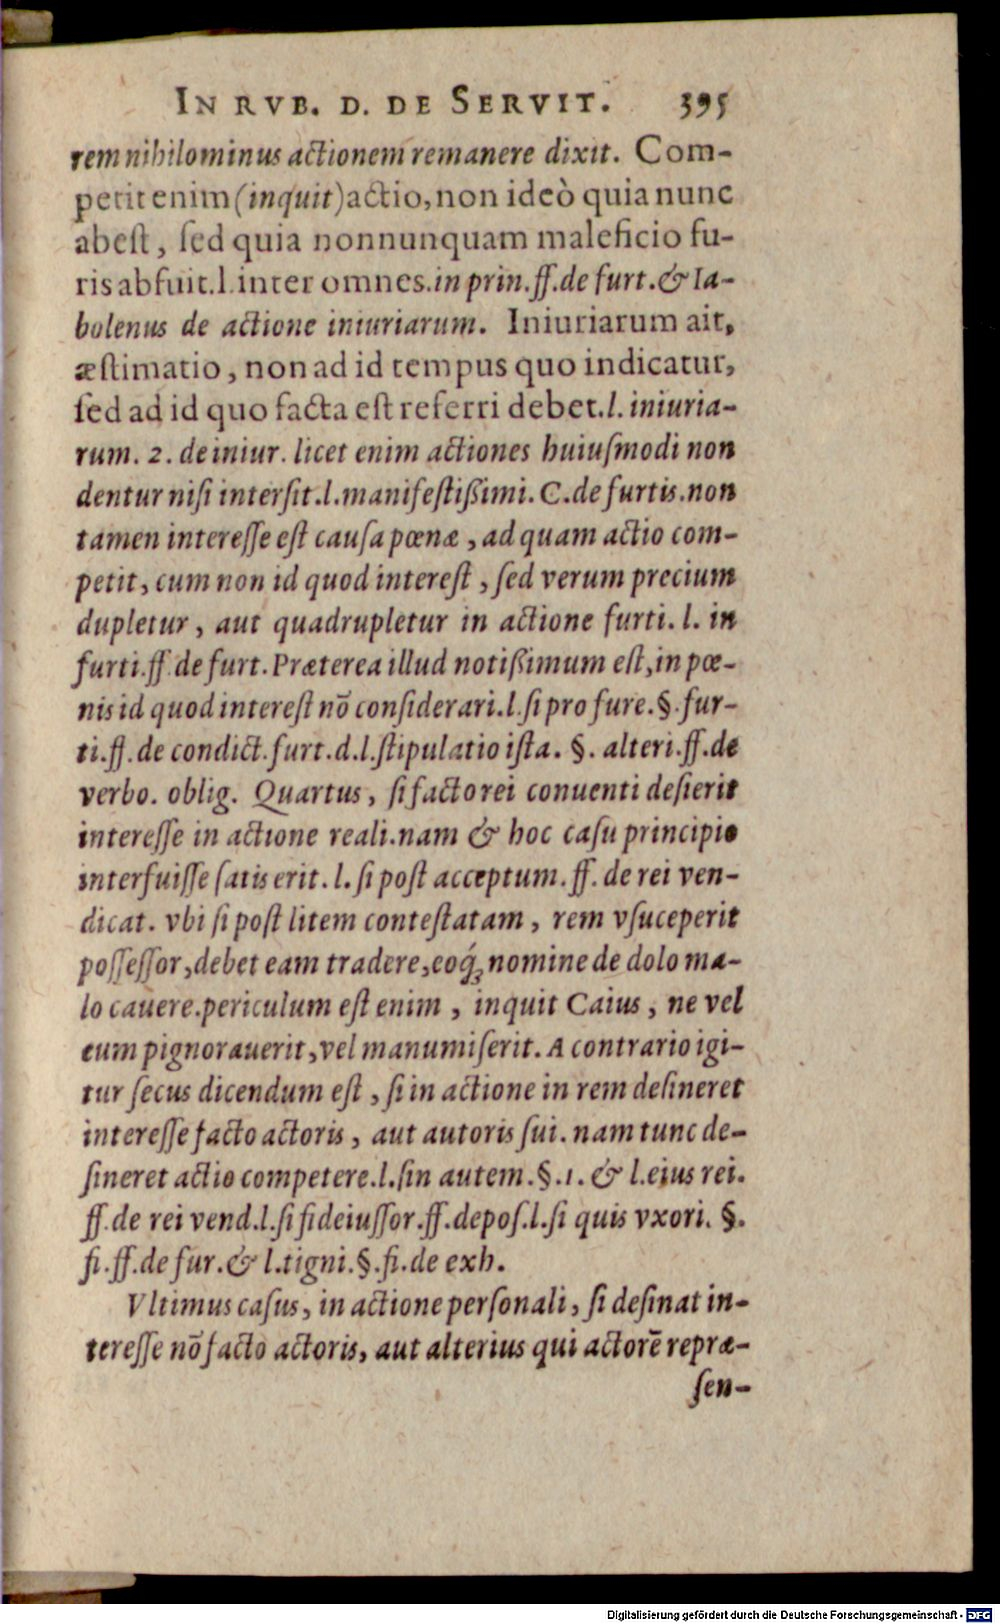 IN RVB. D. DE SERVIT. 395
rem nihilominus actionem remanere dixit. Com-
petit enim (inquit) actio, non ideò quia nunc
abest, sed quia nonnunquam maleficio fu-
ris abfuit. l. inter omnes. in prin. ff. de furt. & Ia-
bolenus de actione iniuriarum. Iniuriarum ait,
æstimatio, non ad id tempus quo indicatur,
sed ad id quo facta est referri debet. l. iniuria-
rum. 2. de iniur. licet enim actiones huiusmodi non
dentur nisi intersit. l. manifestißimi. C. de furtis. non
tamen interesse est causa pœnæ, ad quam actio com-
petit, cum non id quod interest, sed verum precium
dupletur, aut quadrupletur in actione furti. l. in
furti. ff. de furt. Præterea illud notißimum est, in pœ-
nis id quod interest nō considerari. l. si pro fure. §. fur-
ti. ff. de condict. furt. d. l. stipulatio ista. §. alteri. ff. de
verbo. oblig. Quartus, si facto rei conuenti desierit
interesse in actione reali. nam & hoc casu principio
interfuisse satis erit. l. si post acceptum. ff. de rei ven-
dicat. vbi si post litem contestatam, rem vsuceperit
possessor, debet eam tradere, eoq́; nomine de dolo ma-
lo cauere. periculum est enim, inquit Caius, ne vel
eum pignorauerit, vel manumiserit. A contrario igi-
tur secus dicendum est, si in actione in rem desineret
interesse facto actoris, aut autoris sui. nam tunc de-
sineret actio competere. l. sin autem. §. 1. & l. eius rei.
ff. de rei vend. l. si fideiussor. ff. depos. l. si quis vxori. §.
fi. ff. de fur. & l. tigni. §. fi. de exh.
Vltimus casus, in actione personali, si desinat in-
teresse nō facto actoris, aut alterius qui actorē repræ-
sen-
Digitalisierung gefördert durch die Deutsche Forschungsgemeinschaft - DFG